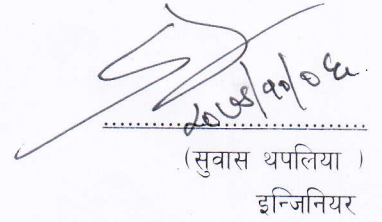 २०७५/१०/०६
.......................................
(सुवास थपलिया )
इन्जिनियर